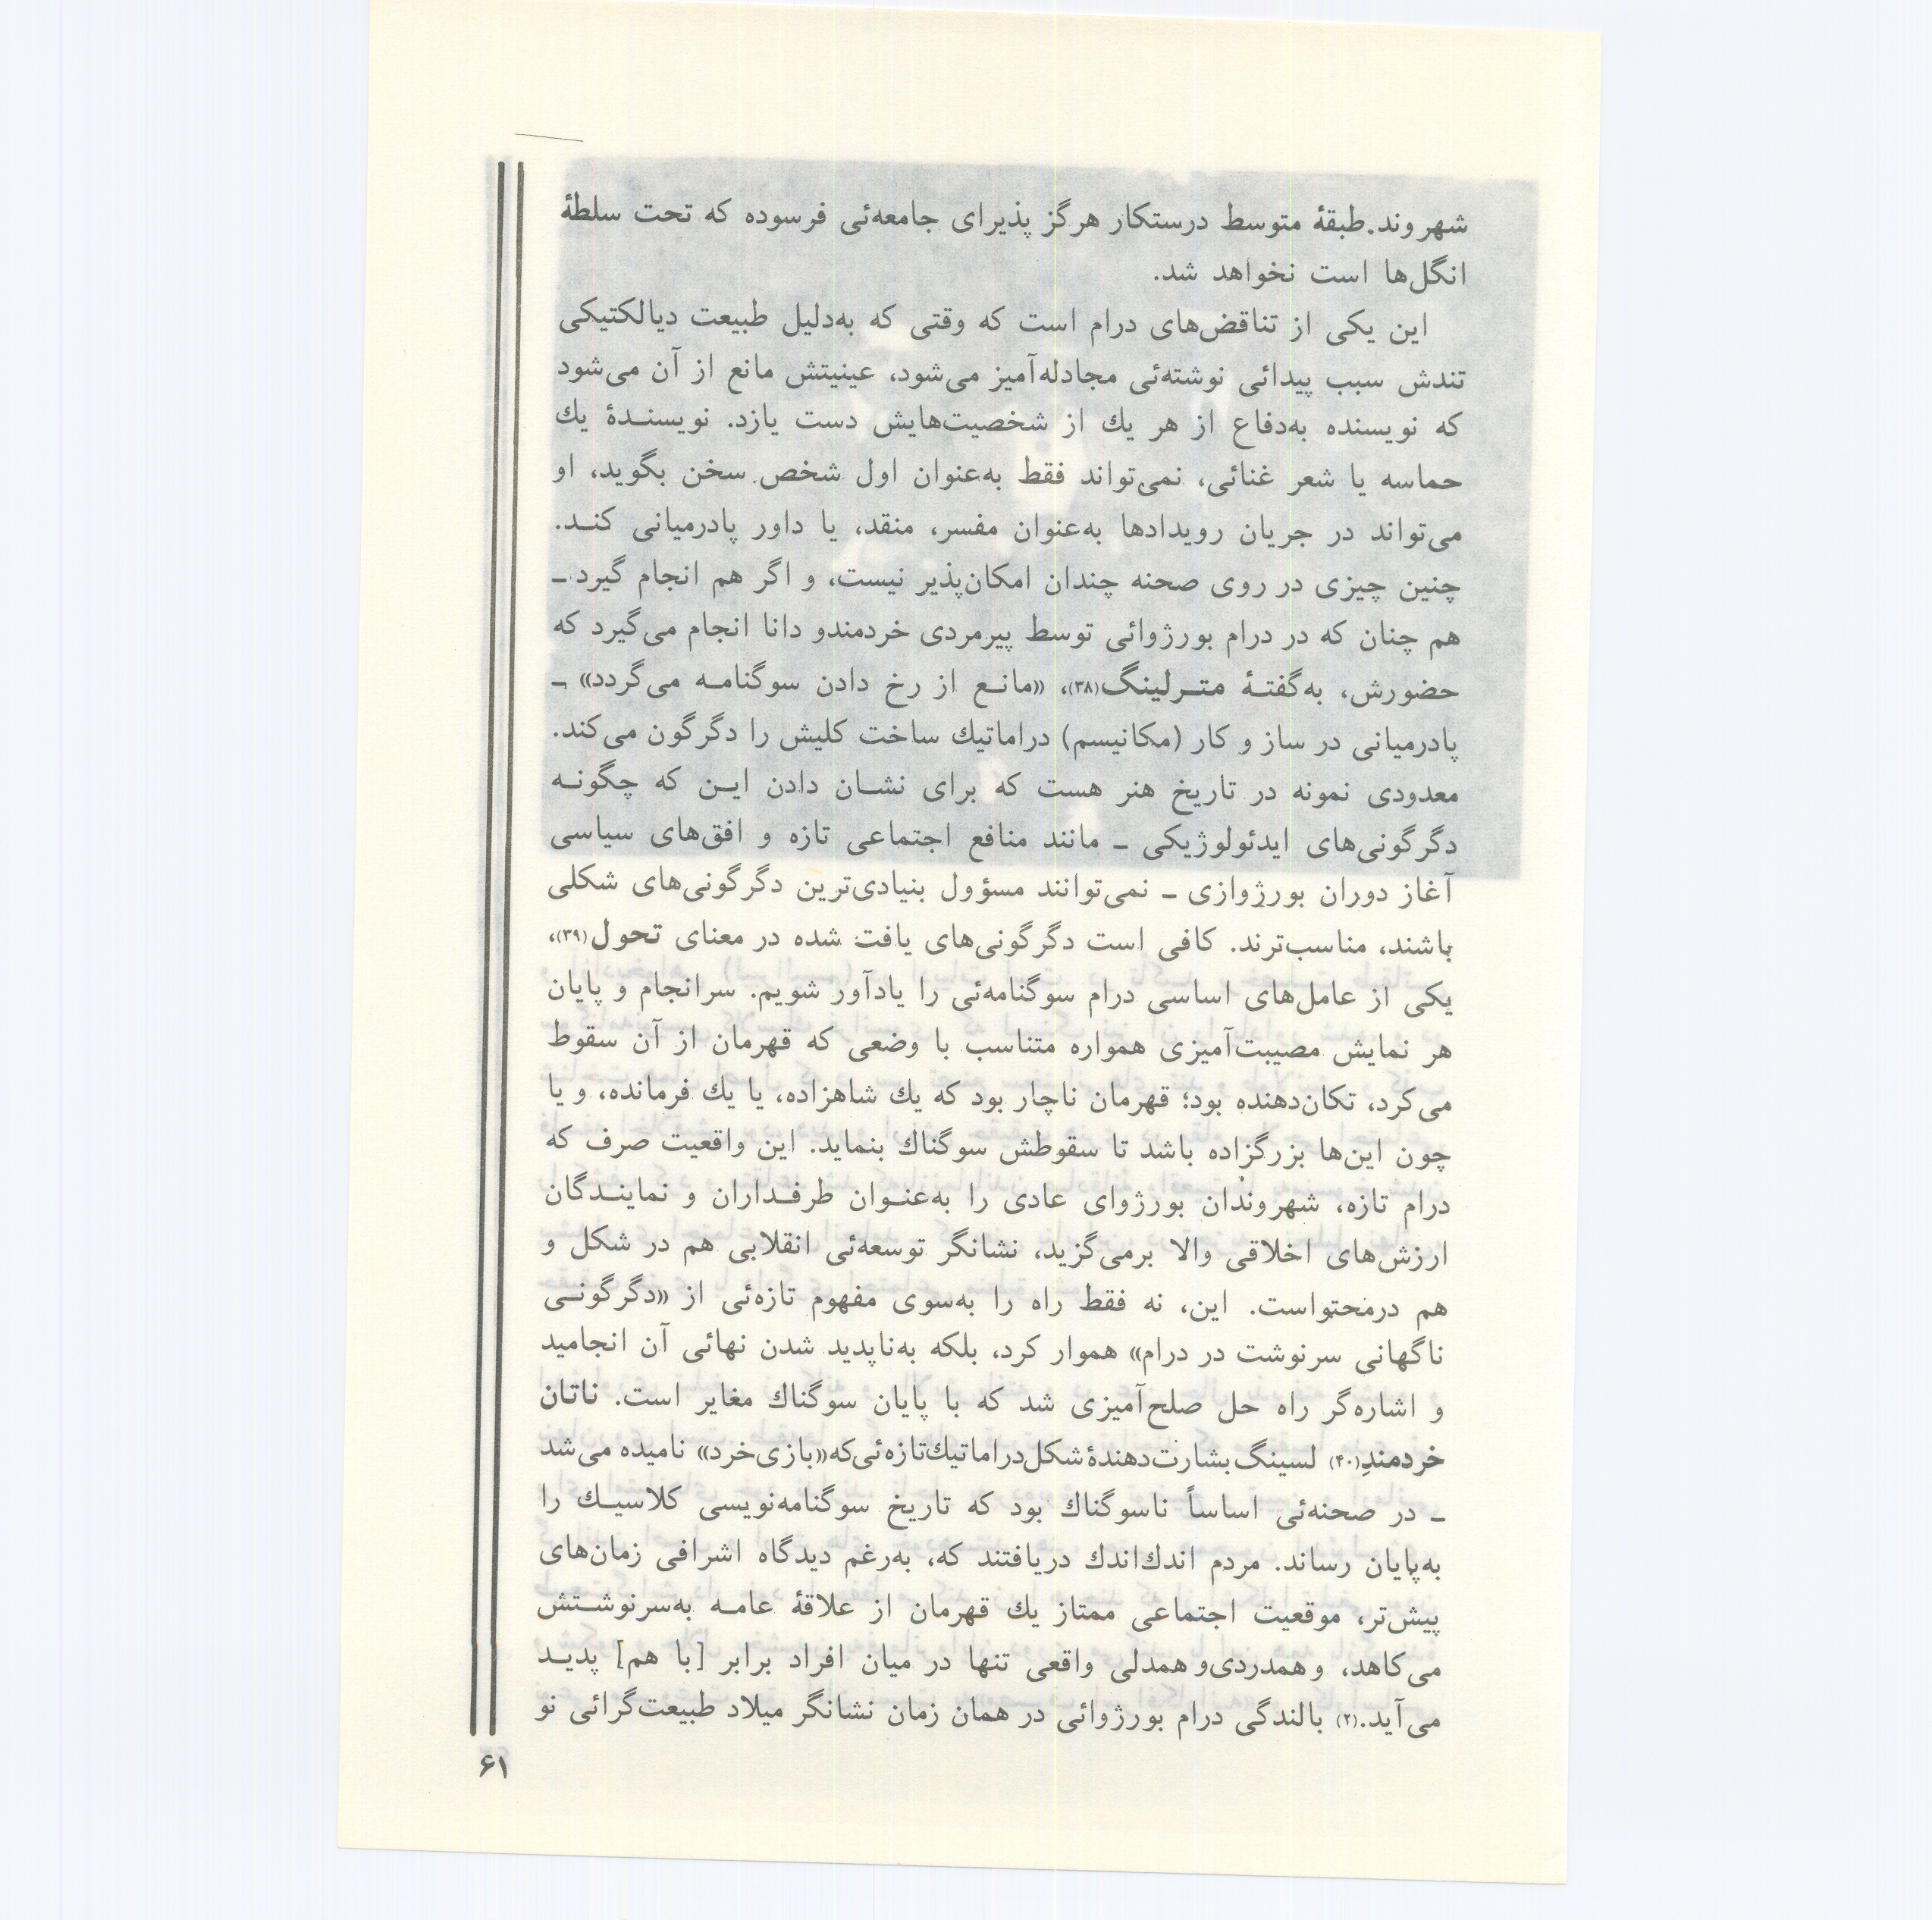 شهروند. طبقهٔ متوسط درستکار هرگز پذیرای جامعه‌ئی فرسوده که تحت سلطهٔ
انگل‌ها است نخواهد شد.
این یکی از تناقض‌های درام است که وقتی که به‌دلیل طبیعت دیالکتیکی
تندش سبب پیدائی نوشته‌ئی مجادله‌آمیز می‌شود، عینیتش مانع از آن می‌شود
که نویسنده به‌دفاع از هر یك از شخصیت‌هایش دست یازد. نویسنـدهٔ یك
حماسه یا شعر غنائی، نمی‌تواند فقط به‌عنوان اول شخص سخن بگوید، او
می‌تواند در جریان رویدادها به‌عنوان مفسر، منقد، یا داور پادرمیانی کنـد.
چنین چیزی در روی صحنه چندان امکان‌پذیر نیست، و اگر هم انجام گیرد ـ
هم چنان که در درام بورژوائی توسط پیرمردی خردمندو دانا انجام می‌گیرد که
حضورش، به‌گفتـهٔ متـرلینگ(۳۸)، «مانـع از رخ دادن سوگنامـه می‌گردد» ـ
پادرمیانی در ساز و کار (مکانیسم) دراماتیك ساخت کلیش را دگرگون می‌کند.
معدودی نمونه در تاریخ هنر هست که برای نشـان دادن ایـن که چگونـه
دگرگونی‌های ایدئولوژیکی ـ مانند منافع اجتماعی تازه و افق‌های سیاسی
آغاز دوران بورژوازی ـ نمی‌توانند مسؤول بنیادی‌ترین دگرگونی‌های شکلی
باشند، مناسب‌ترند. کافی است دگرگونی‌های یافت شده در معنای تحول(۳۹)،
یکی از عامل‌های اساسی درام سوگنامه‌ئی را یادآور شویم. سرانجام و پایان
هر نمایش مصیبت‌آمیزی همواره متناسب با وضعی که قهرمان از آن سقوط
می‌کرد، تکان‌دهنده بود؛ قهرمان ناچار بود که یك شاهزاده، یا یك فرمانده، و یا
چون این‌ها بزرگزاده باشد تا سقوطش سوگناك بنماید. این واقعیت صرف که
درام تازه، شهروندان بورژوای عادی را به‌عنـوان طرفـداران و نماینـدگان
ارزش‌های اخلاقی والا برمی‌گزید، نشانگر توسعه‌ئی انقلابی هم در شکل و
هم درمحتواست. این، نه فقط راه را به‌سوی مفهوم تازه‌ئی از «دگرگونـی
ناگهانی سرنوشت در درام» هموار کرد، بلکه به‌ناپدید شدن نهائی آن انجامید
و اشاره‌گر راه حل صلح‌آمیزی شد که با پایان سوگناك مغایر است. ناتان
خردمندِ(۴۰) لسینگ بشارت‌دهندهٔ شکل دراماتیك تازه‌ئی که «بازی خرد» نامیده می‌شد
ـ در صحنه‌ئی اساساً ناسوگناك بود که تاریخ سوگنامه‌نویسی کلاسیـك را
به‌پایان رساند. مردم اندك‌اندك دریافتند که، به‌رغم دیدگاه اشرافی زمان‌های
پیش‌تر، موقعیت اجتماعی ممتاز یك قهرمان از علاقهٔ عامـه به‌سرنوشـتش
می‌کاهد، و همدردی و همدلی واقعی تنها در میان افراد برابر [با هم] پدیـد
می‌آید.(۲) بالندگی درام بورژوائی در همان زمان نشانگر میلاد طبیعت‌گرائی نو
۶۱